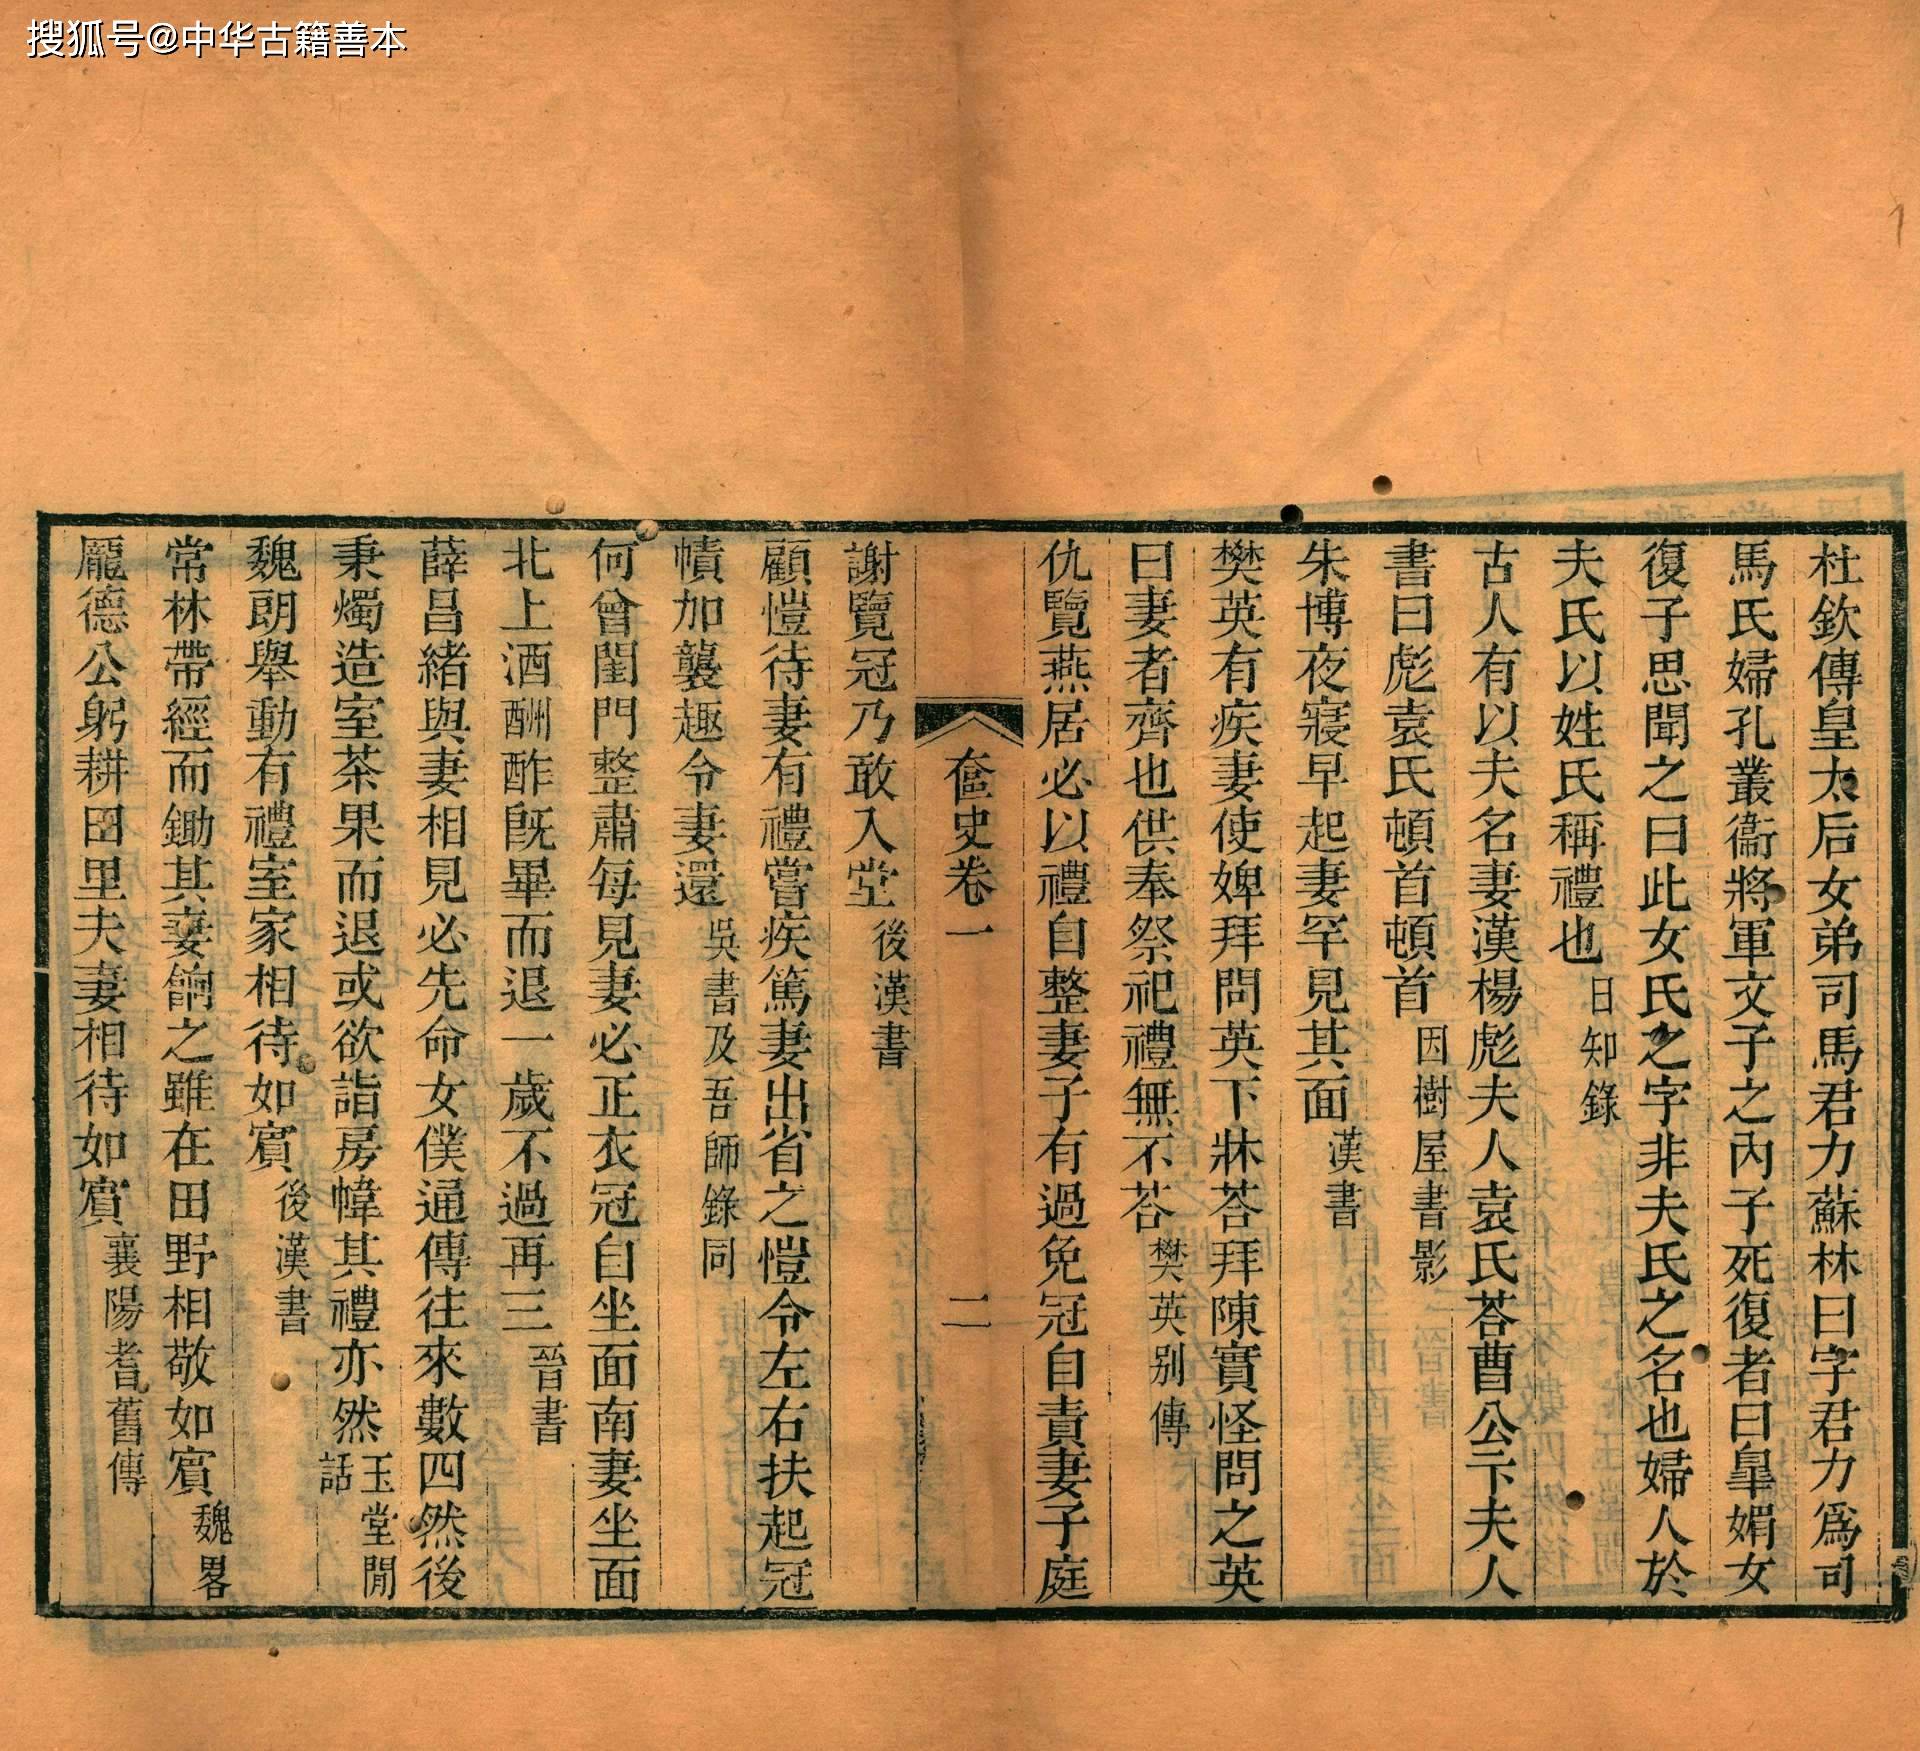 搜狐号@中华古籍善本
杜欽傳皇太后女弟司馬君力蘇林曰字君力爲司
馬氏婦孔叢衞將軍文子之內子死復者曰臯媚女
復子思聞之曰此女氏之字非夫氏之名也婦人於
夫氏以姓氏稱禮也日知錄
古人有以夫名妻漢楊彪夫人袁氏荅曹公卞夫人
書曰彪袁氏頓首頓首因樹屋書影
朱博夜寢早起妻罕見其面漢書
樊英有疾妻使婢拜問英下牀荅拜陳實怪問之英
曰妻者齊也供奉祭祀禮無不荅樊英别傳
仇覽燕居必以禮自整妻子有過免冠自責妻子庭
奩史卷一 二
謝覽冠乃敢入堂後漢書
顧愷待妻有禮嘗疾篤妻出省之愷令左右扶起冠
幘加襲趣令妻還吳書及吾師錄同
何曾閨門整肅每見妻必正衣冠自坐面南妻坐面
北上酒酬酢旣畢而退一歲不過再三晉書
薛昌緒與妻相見必先命女僕通傳往來數四然後
秉燭造室茶果而退或欲詣房幃其禮亦然玉堂閒話
魏朗舉動有禮室家相待如賓後漢書
常林帶經而鋤其妻餉之雖在田野相敬如賓魏畧
龐德公躬耕田里夫妻相待如賓襄陽耆舊傳